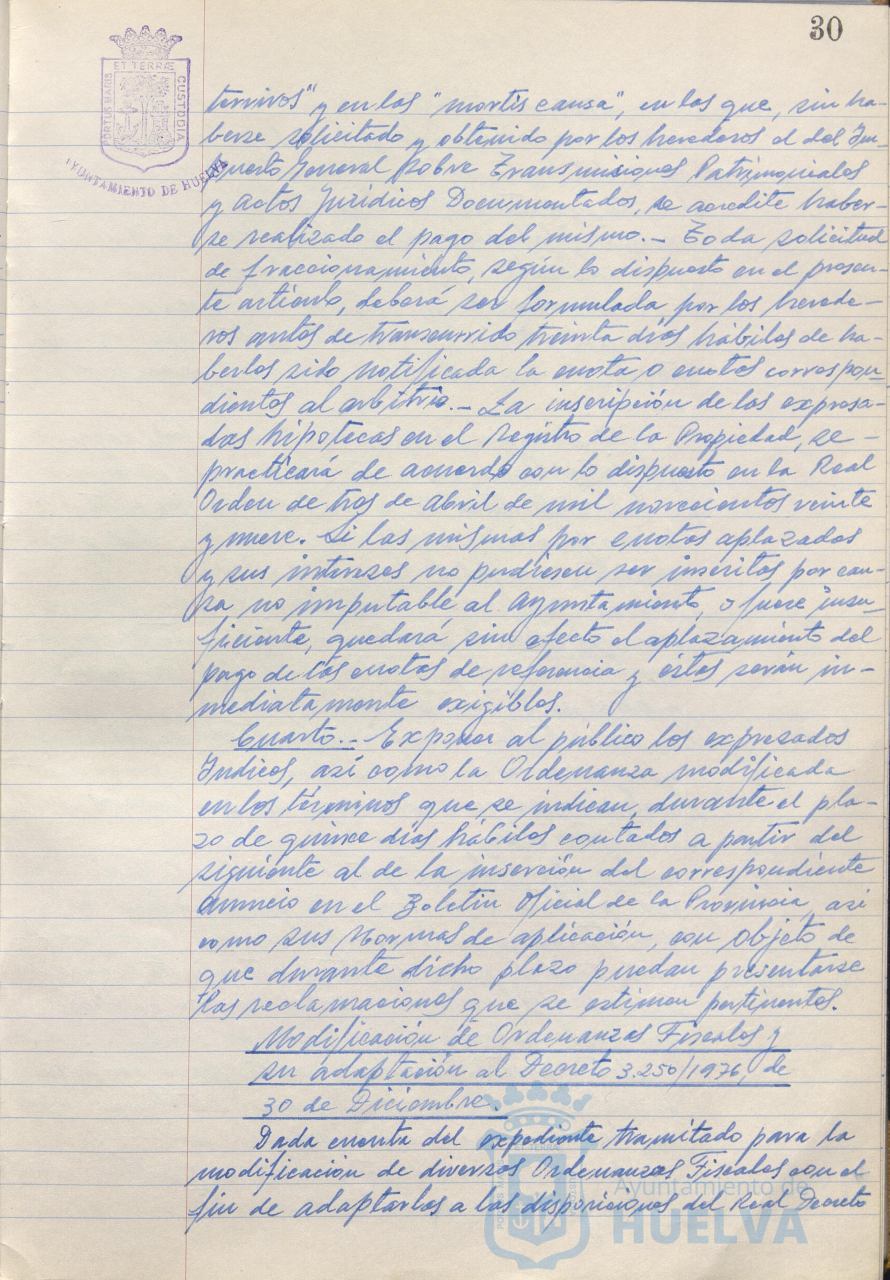 30
ET TERRÆ
PORTUS MARIS
CUSTODIA
AYUNTAMIENTO DE HUELVA
tervivos" y en las "mortis causa", en las que, sin ha-
berse solicitado y obtenido por los herederos el del Im-
puesto General sobre Transmisiones Patrimoniales
y Actos Jurídicos Documentados, se acredite haber-
se realizado el pago del mismo.- Toda solicitud
de fraccionamiento, según lo dispuesto en el presen-
te artículo, deberá ser formulada por los herede-
ros antes de transcurrido treinta días hábiles de ha-
berles sido notificada la cuota o cuotas correspon-
dientes al arbitrio.- La inscripción de las expresa-
das hipotecas en el Registro de la Propiedad, se -
practicará de acuerdo con lo dispuesto en la Real
Orden de tres de abril de mil novecientos veinte
y nueve. Si las mismas por cuotas aplazadas
y sus intereses no pudiesen ser inscritas por cau-
sa no imputable al Ayuntamiento, o fuere insu-
ficiente, quedará sin efecto el aplazamiento del
pago de las cuotas de referencia y éstas serán in-
mediatamente exigibles.
Cuarto.- Exponer al público los expresados
Indices, así como la Ordenanza modificada
en los términos que se indican, durante el pla-
zo de quince días hábiles contados a partir del
siguiente al de la inserción del correspondiente
anuncio en el Boletín Oficial de la Provincia, así
como sus Normas de aplicación, con objeto de
que durante dicho plazo puedan presentarse
las reclamaciones que se estimen pertinentes.
Modificación de Ordenanzas Fiscales y
su adaptación al Decreto 3.250/1976, de
30 de Diciembre.
Dada cuenta del expediente tramitado para la
modificación de diversas Ordenanzas Fiscales con el
fin de adaptarlas a las disposiciones del Real Decreto
Ayuntamiento de
HUELVA